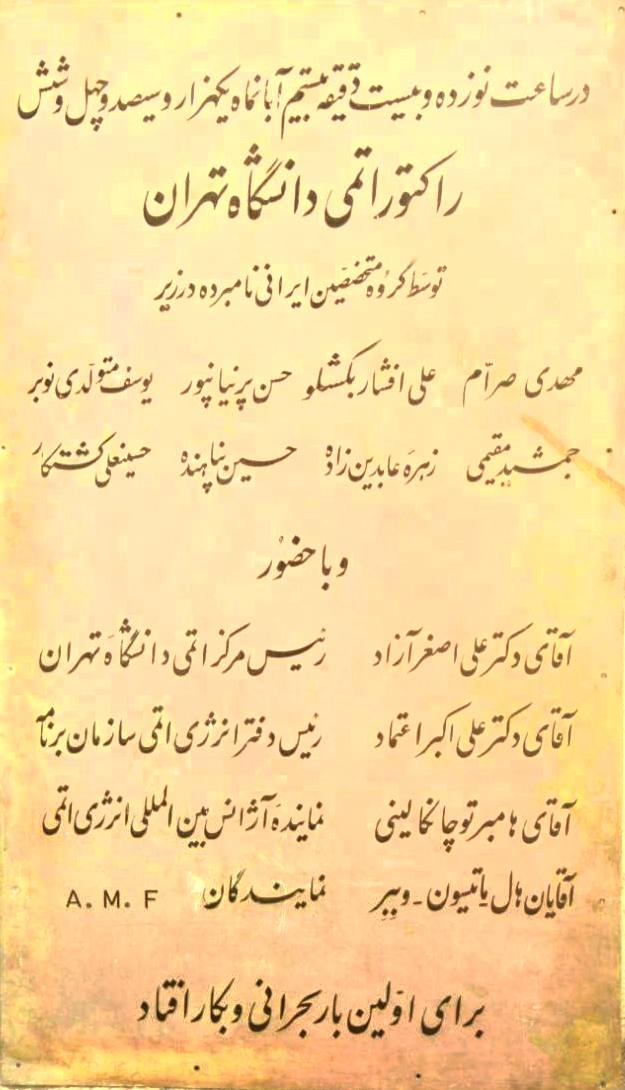 در ساعت نوزده و بیست دقیقه بیستم آبانماه یکهزار و سیصد و چهل و شش
راکتور اتمی دانشگاه تهران
توسط گروه متخصصین ایرانی نامبرده در زیر
مهدی صرّام علی افشار بکشلو حسن پرنیانپور یوسف متولدی نوبر
جمشید مقیمی زهره عابدین زاده حسین پناهنده حسینعلی کشتکار
و با حضور
آقای دکتر علی اصغر آزاد رئیس مرکز اتمی دانشگاه تهران
آقای دکتر علی اکبر اعتماد رئیس دفتر انرژی اتمی سازمان برنامه
آقای هامبرتو چانکالینی نمایندهٔ آژانس بین المللی انرژی اتمی
آقایان هال - یاتیسون - وبیر نمایندگان A. M. F
برای اوّلین بار بحرانی و بکار افتاد